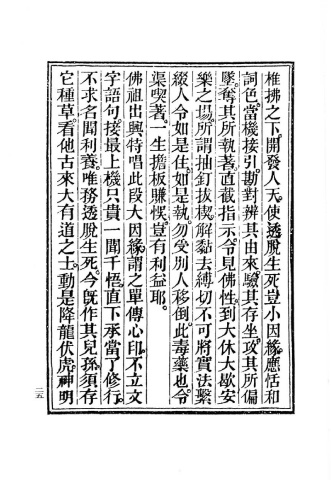 椎拂之下。開發人天。使透脫生死。豈小因緣。應恬和
詞色。當機接引。勘對辨其由來。驗其存坐。攻其所偏
墜。奪其所執著。直截指示。令見佛性。到大休大歇安
樂之場。所謂抽釘拔楔。解黏去縛。切不可將實法繫
綴人。令如是住。如是執。勿受別人移倒。此毒藥也。令
渠喫著。一生擔板賺悞。豈有利益耶。
佛祖出興。特唱此段大因緣。謂之單傳心印。不立文
字語句。接最上機。只貴一聞千悟。直下承當。了修行。
不求名聞利養。唯務透脫生死。今旣作其兒孫。須存
它種草。看他古來大有道之士。動是降龍伏虎。神明
二五